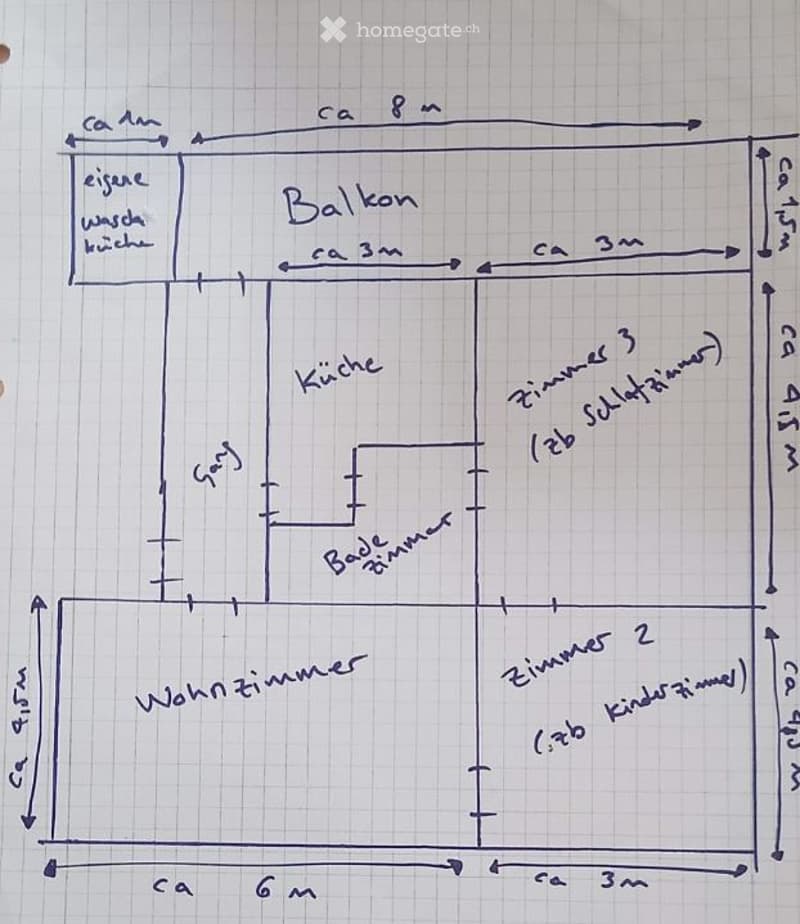 homegate.ch
ca 1m
ca 8 m
eigene
wasch
küche
Balkon
ca 1,5m
ca 3m
ca 3m
Küche
Zimmer 3
(zb Schlafzimmer)
ca 4,5 m
Gang
Bade
zimmer
Wohnzimmer
Zimmer 2
(zb Kinderzimmer)
ca 4,5m
ca 4,5 m
ca 6 m
ca 3m